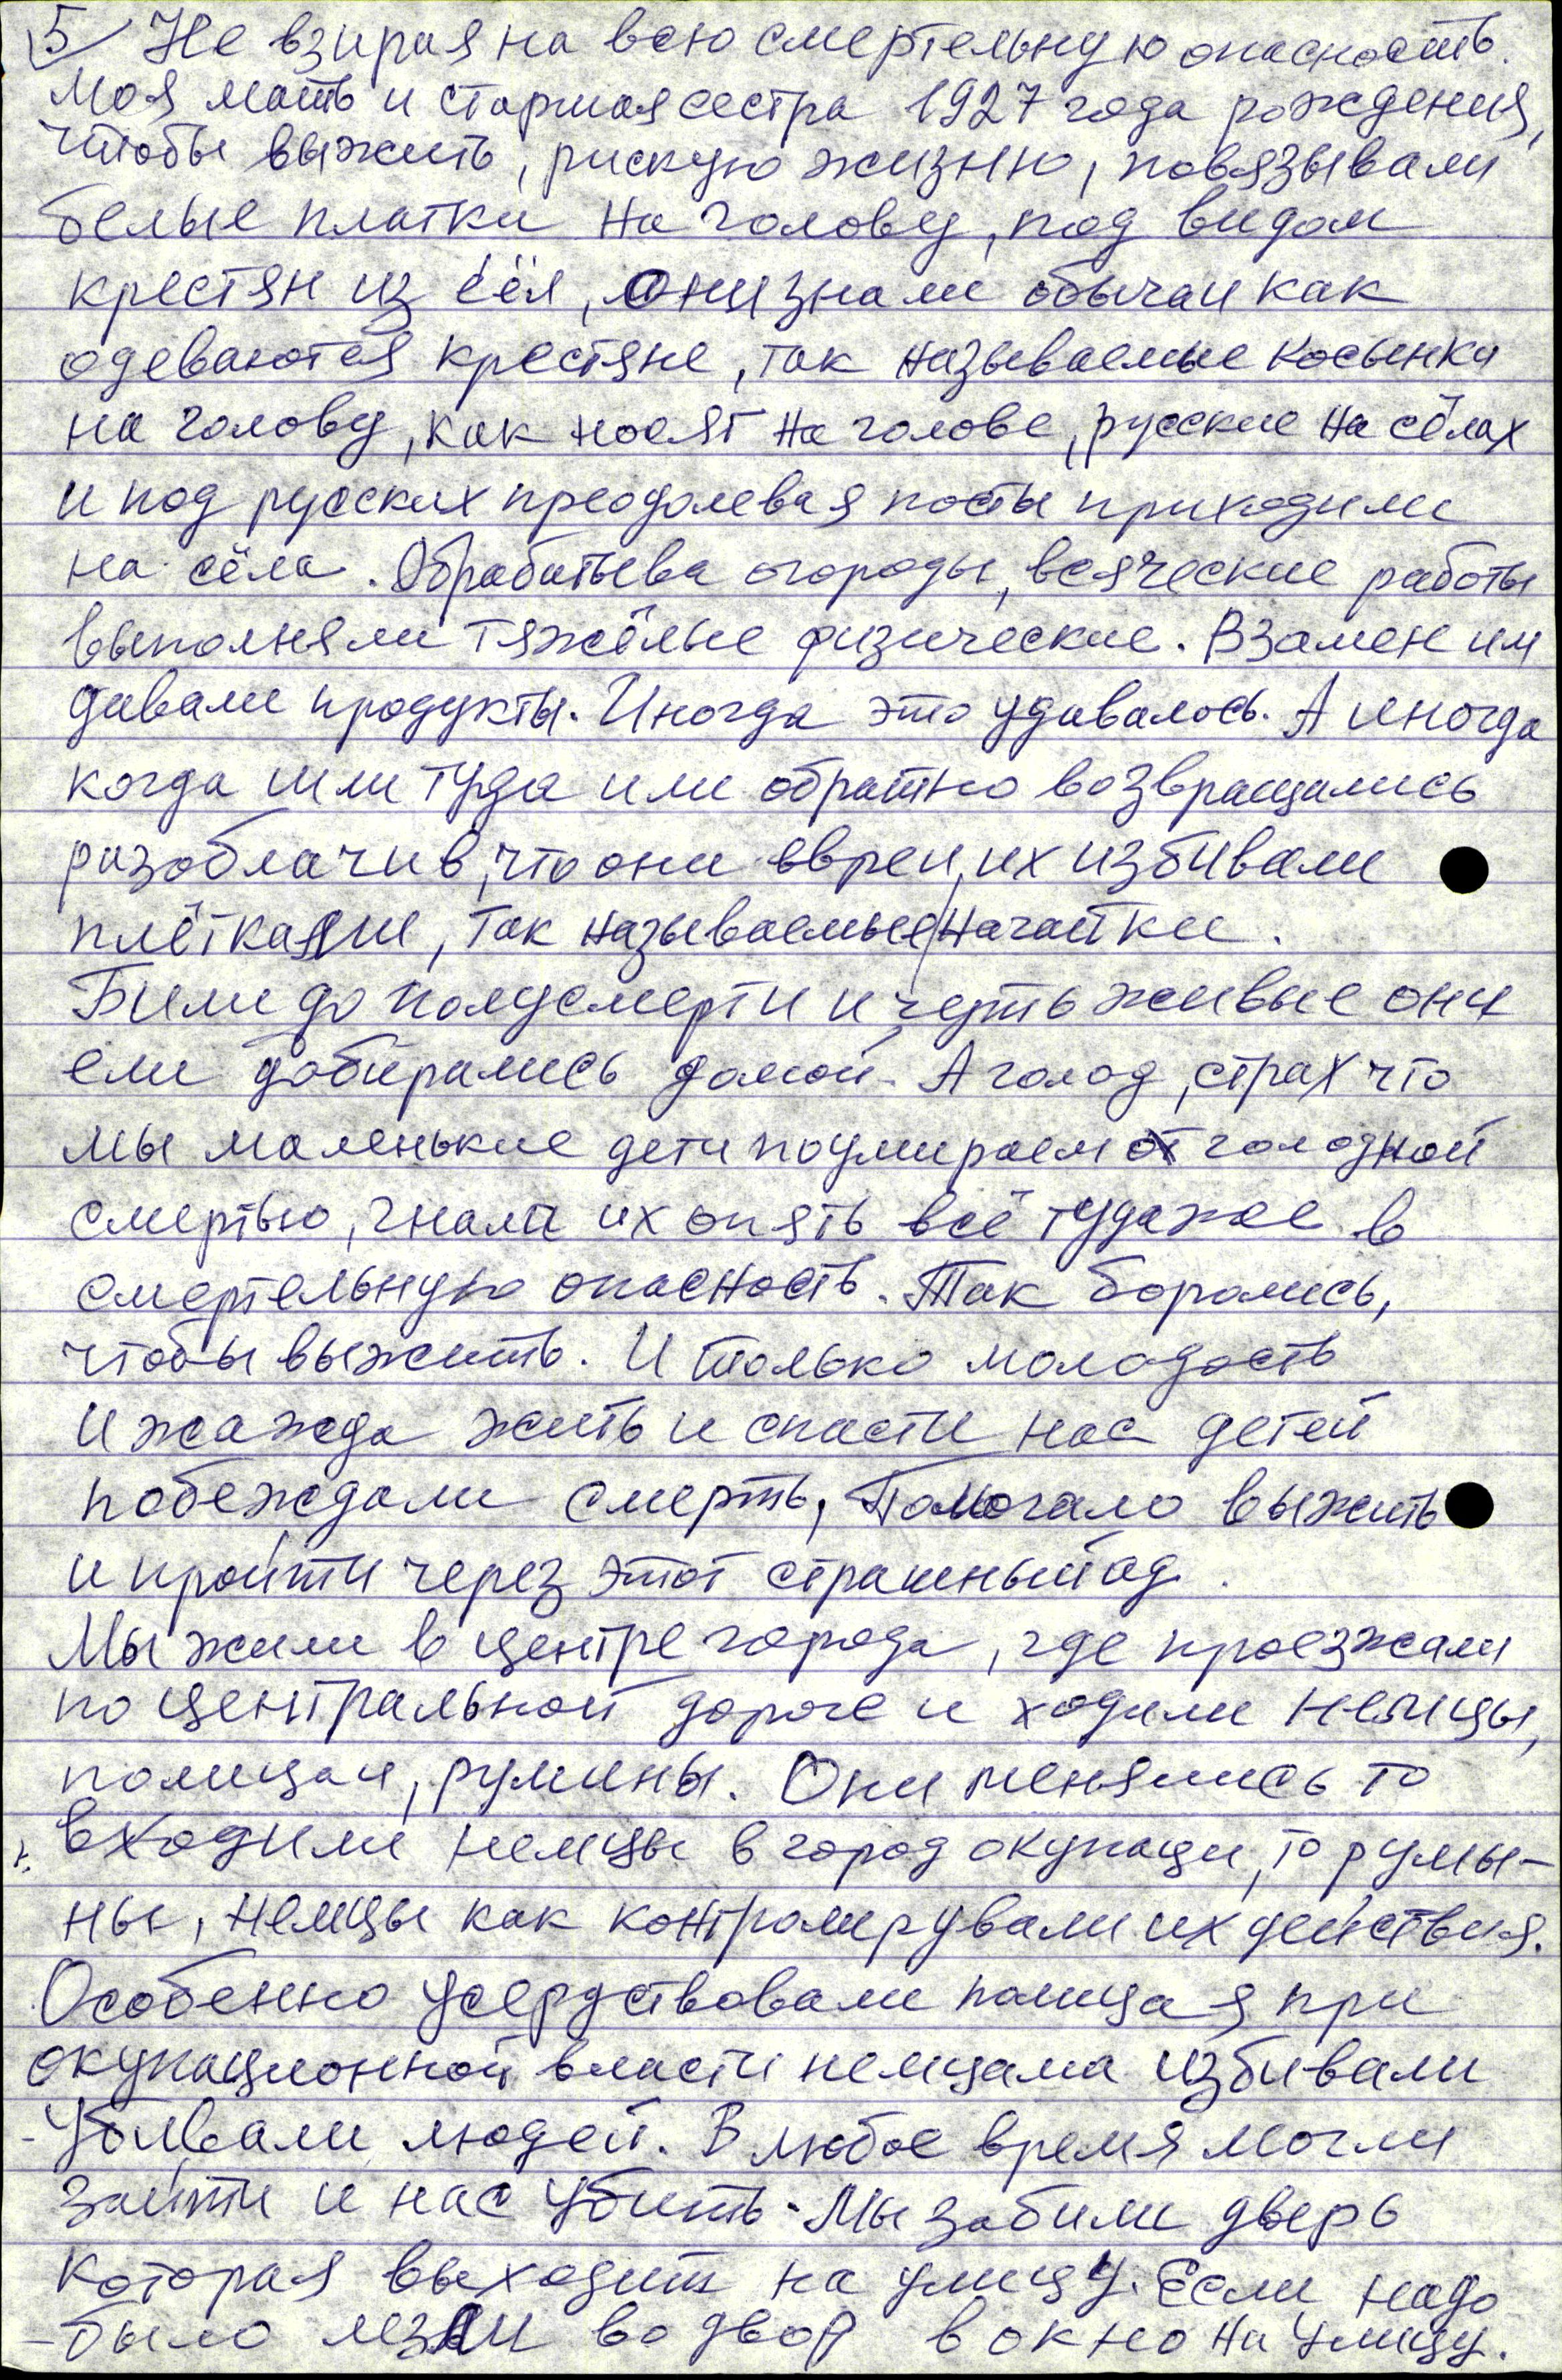 5) Не взирая на всю смертельную опасность.
Моя мать и старшая сестра 1927 года рождения,
чтобы выжить, рискую жизню, повязывали
белые платки на голову, под видом
крестян из сёл, они знали обычаи как
одеваются крестяне, так называемые косынки
на голову, как носят на голове, русские на сёлах
и под русских преодолевая посты приходили
на сёла. Обрабатыва огороды, всяческие работы
выполняли тяжёлые физические. Взамен им
давали продукты. Иногда это удавалось. А иногда
когда шли туда или обратно возвращались
разоблачив, что они евреи, их избивали
плётками, так называемые нагайки.
Били до полусмерти и чуть живые они
ели добирались домой. А голод, страх что
мы маленькие дети поумираем голодной
смертью, гнали их опять всё тудаже в
смертельную опасность. Так боролись,
чтобы выжить. И только молодость
и жажда жить и спасти нас детей
побеждали смерть, Помогало выжить
и пройти через этот страшный ад.
Мы жили в центре города, где проезжали
по центральной дороге и ходили немцы,
полицаи, румыны. Они менялись то
входили немцы в город окупаци, то румы-
ны, немцы как контролирували их действия.
Особенно усердствовали полицая при
окупационной власти немцама избивали
- Убивали людей. В любое время могли
зайти и нас убить. Мы забили дверь
которая выходит на улицу. Если надо
- было лезли во двор в окно на улицу.